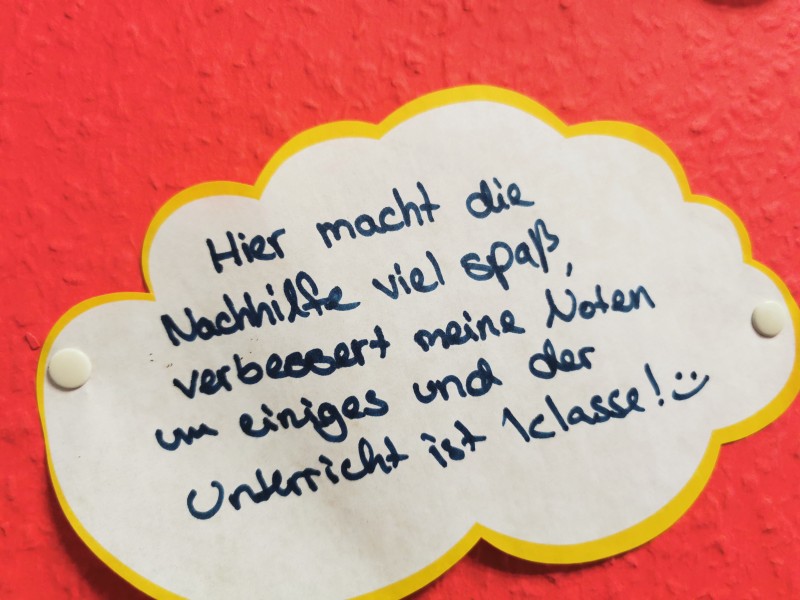 Hier macht die
Nachhilfe viel spaß,
verbessert meine Noten
um einiges und der
Unterricht ist 1 classe! :)